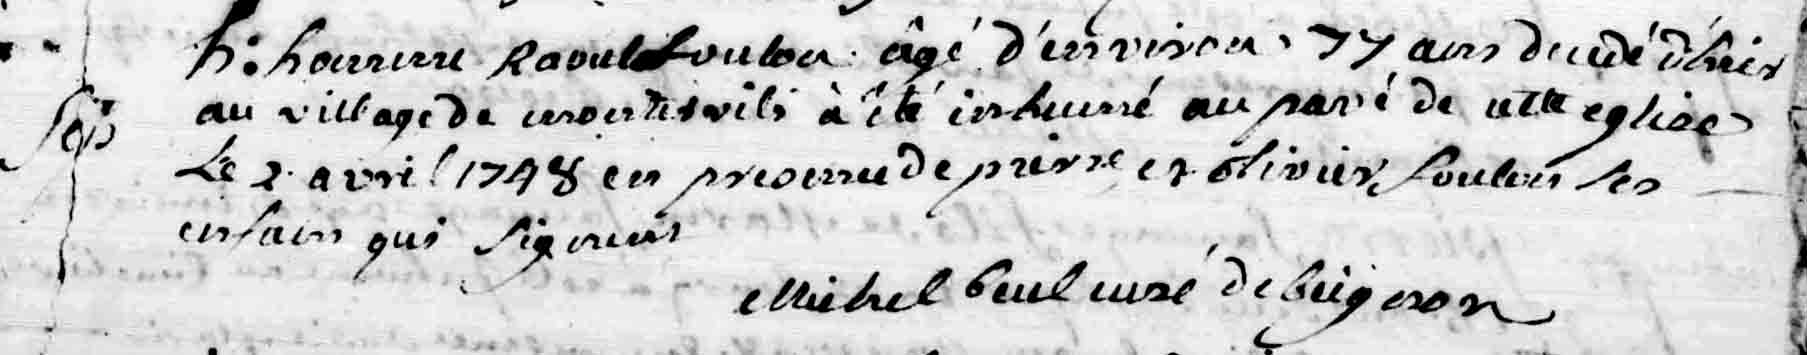 h: homme Raoul Foulon âgé d'environ 77 ans decedé d'hier
au village de à été inhumé au pavé de cette eglise
Sep
Le 2 avril 1748 en presence de pierre et olivier foulon ses
enfans qui signent
Michel curé de